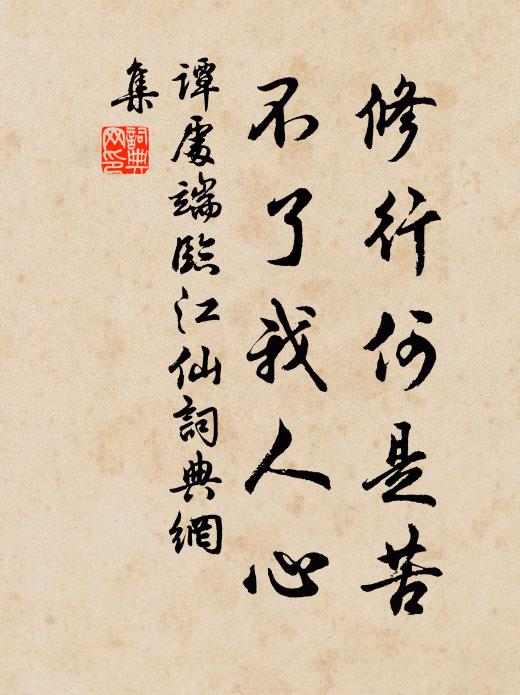 修行何是苦
不了我人心
譚處端臨江仙詞典網
集
詞典
网印